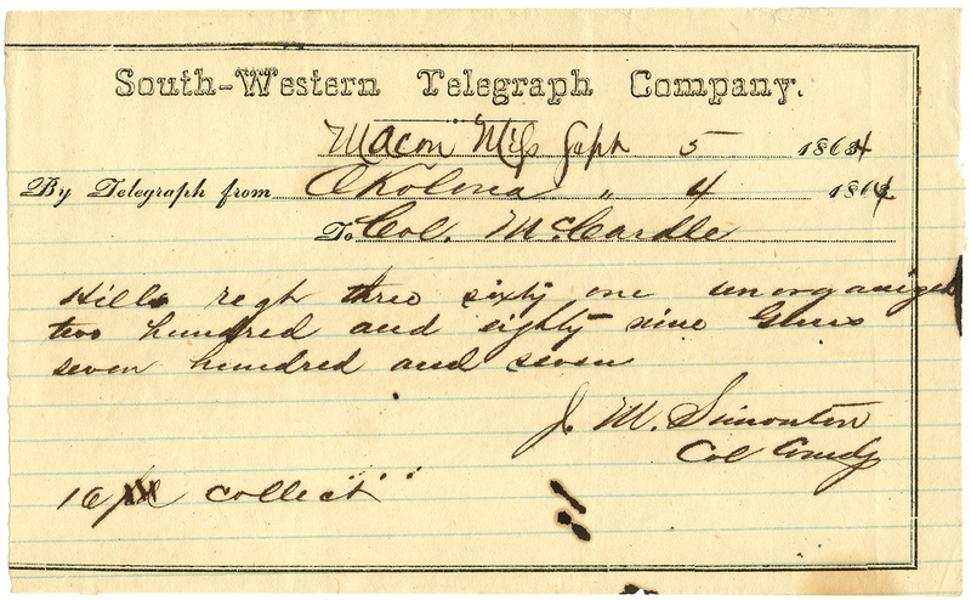 South-Western Telegraph Company.
Macon Miss Sept 5 1864
By Telegraph from Okolona " 4 1864
To Col. McCardle
Hills regt three sixty one unorganized
two hundred and eighty nine Genls
seven hundred and seven
J. M. Simonton
Col Comdg
16 collect